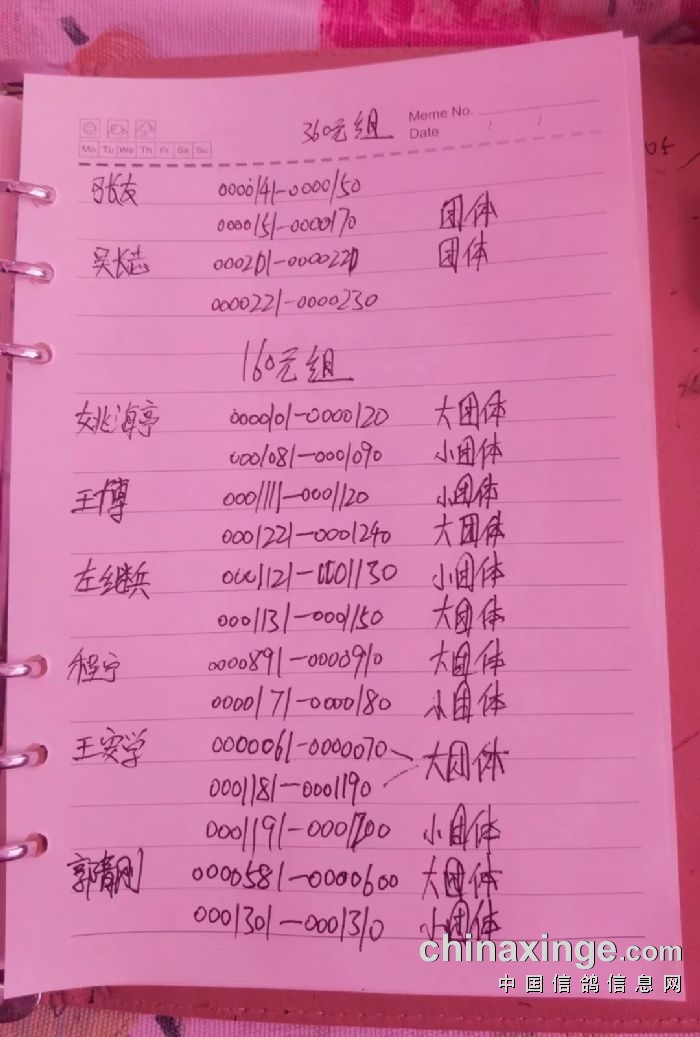 360元组
Meme No.
Date / /
Mo Tu We Th Fr Sa Su
05
张友 0000141-0000150
0000151-0000170 团体
吴长志 0000201-0000220 团体
0000221-0000230
160元组
姚海亭 0000101-0000120 大团体
0001081-0001090 小团体
王博 0001111-0001120 小团体
0001221-0001240 大团体
左继兵 0001121-0001130 小团体
0001131-0001150 大团体
程宁 0000891-0000910 大团体
0000171-0000180 小团体
王安学 0000061-0000070 大团体
0001181-0001190
0001191-0001200 小团体
郭青刚 0000581-0000600 大团体
0001301-0001310 小团体
chinaxinge.com
中国信鸽信息网